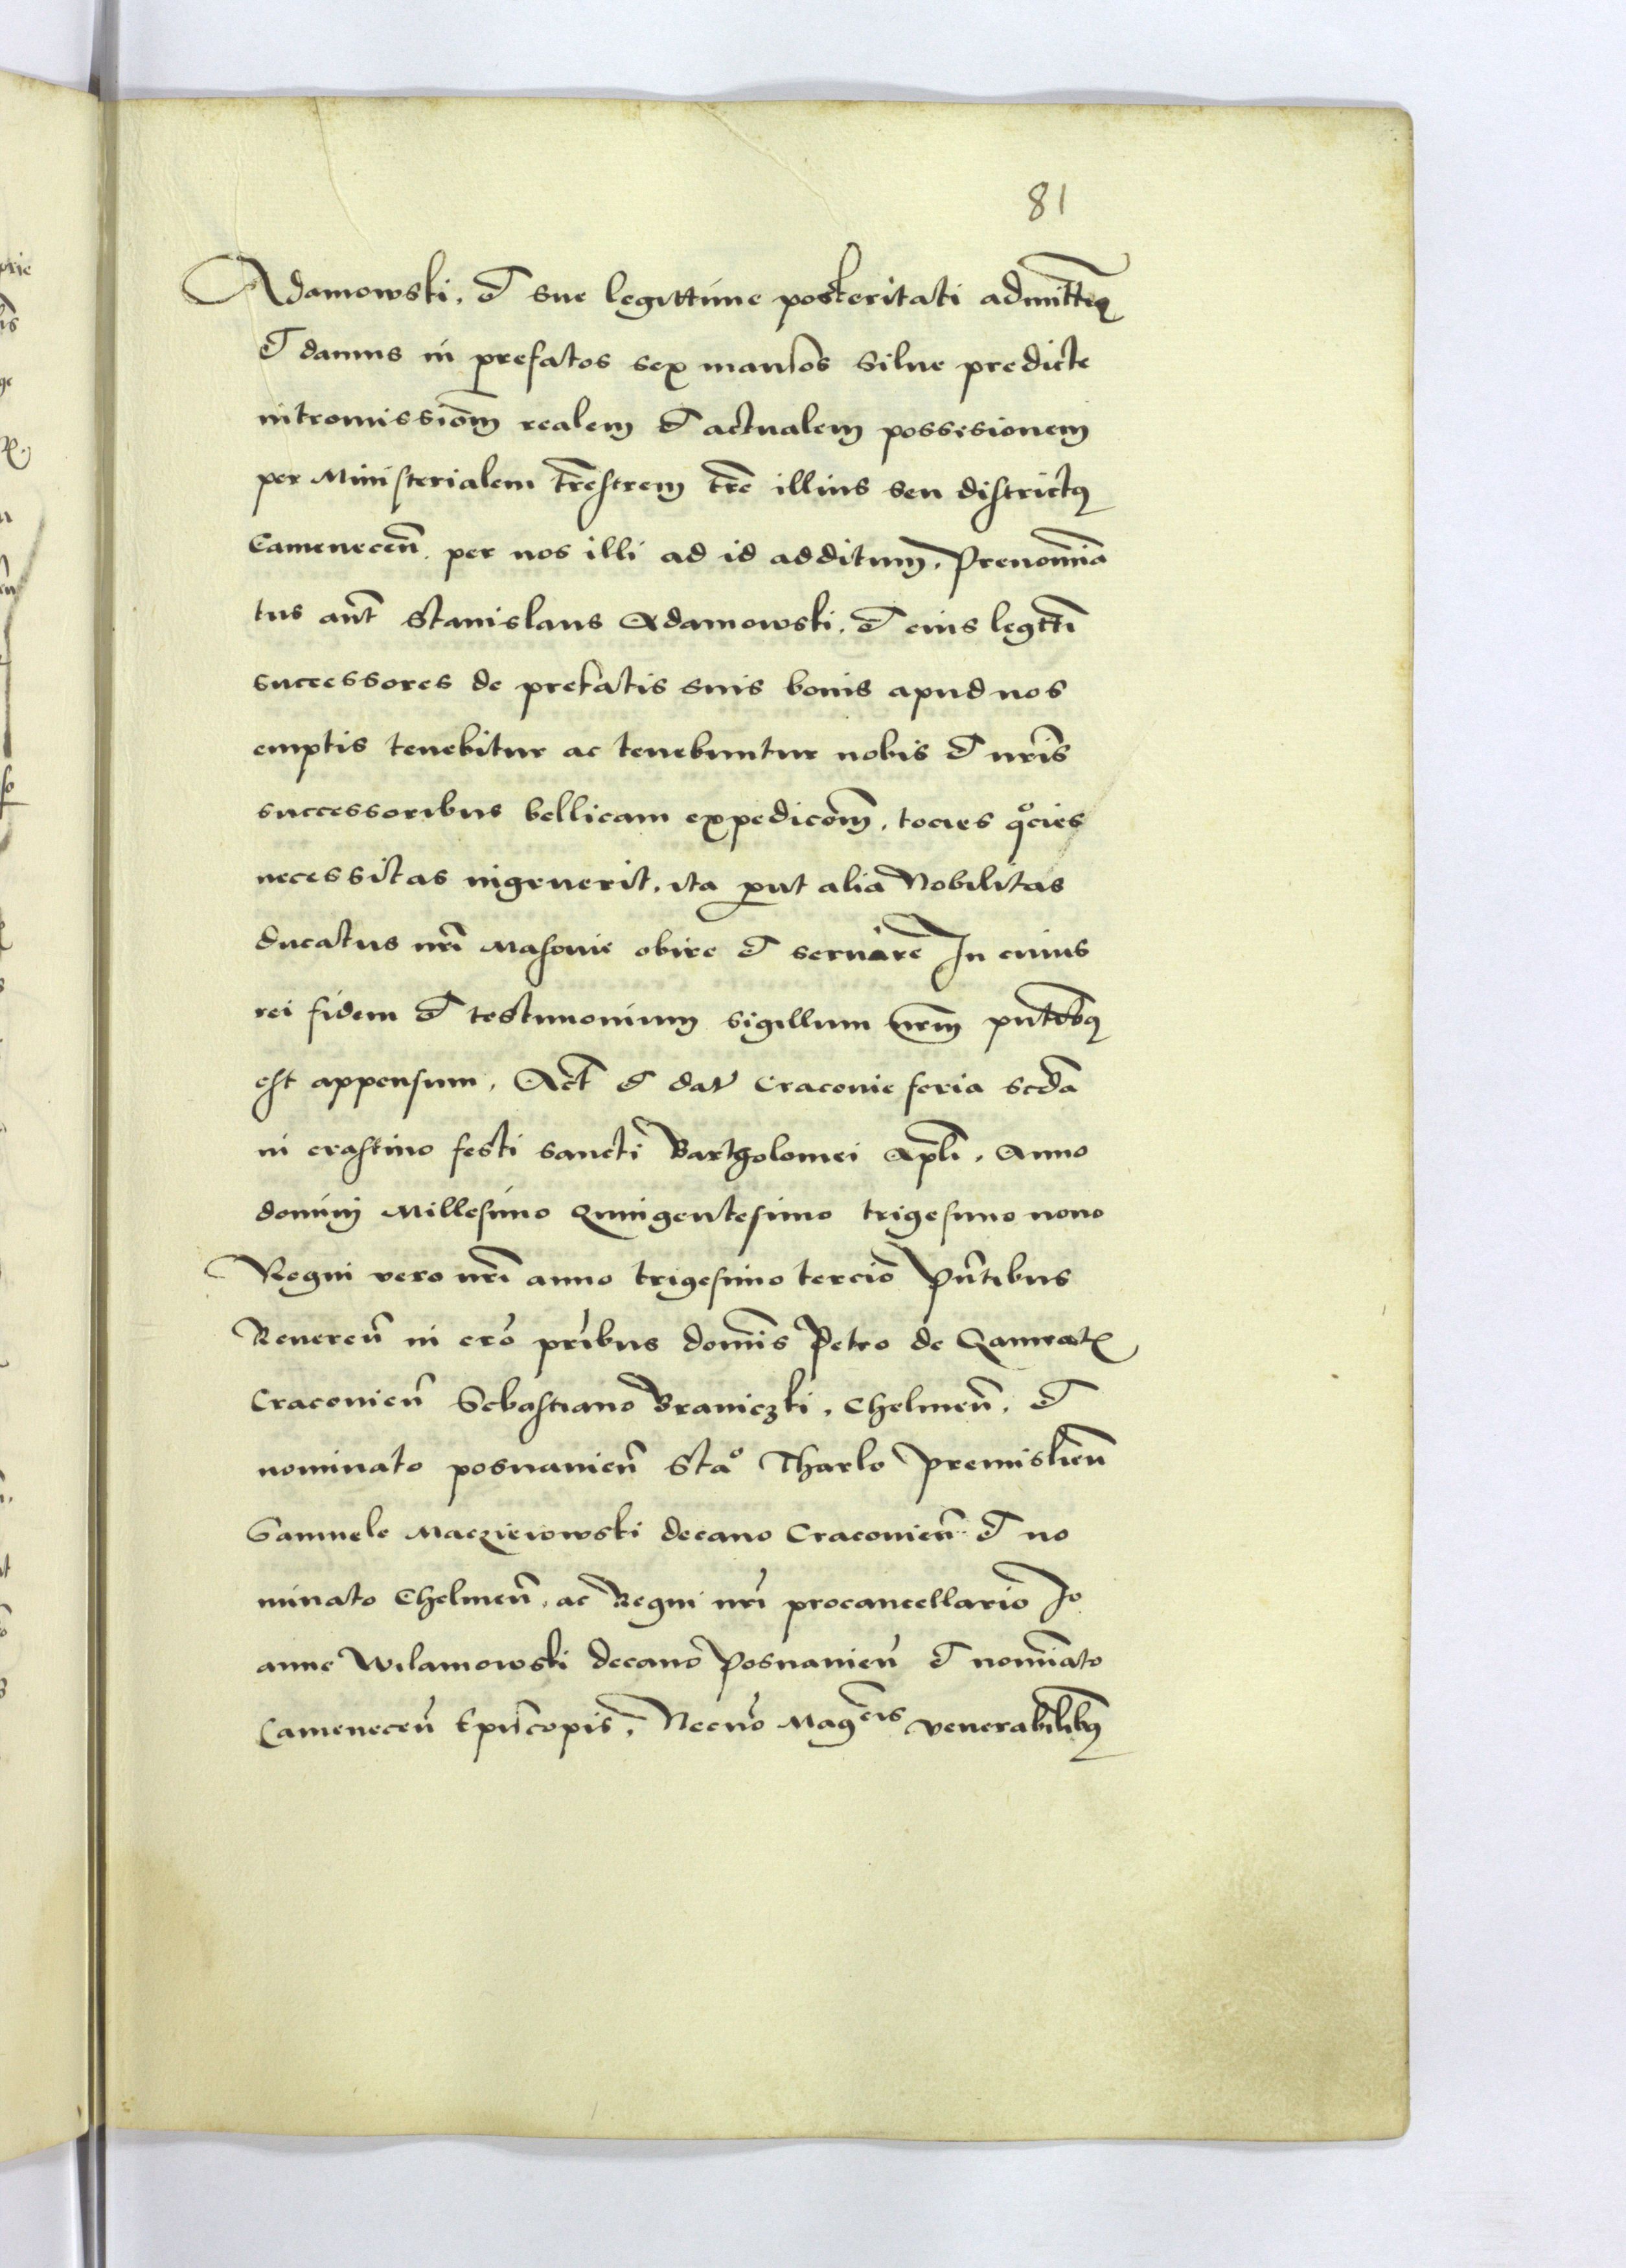 81
Adamowski. et sue legittime posteritati admittim9
et damus in prefatos sex mansos silue predicte
intromissiom̄ realem et actualem possesionem
per Ministerialem trr̄estrem trr̄e illius seu districtq
Camenecen̄. per nos illi ad id additum. Prenomina
tus aut̄ Stanislaus Adamowski. et eius legttī
successores de prefatis suis bonis apud nos
emptis tenebitur ac tenebuntur nobis et nr̄is
successoribus bellicam expedicōm̄. tocies qͦcies
necessitas ingruerit. ita put alia Nobilitas
ducatus nr̄i Masouie obire et seruare In cuius
rei fidem et testimonium sigillum nr̄m pn̄tibq
est appensum. Act̄ et dat̄ Cracouie feria scd̄a
in crastino festi sancti Bartholomei apl̄i. Anno
domini Millesimo Quingentesimo trigesimo nono
Regni vero nr̄i anno trigesimo tercio Pn̄tibus
Reueren̄ in cr̄o pr̄ibus domīs Petro de Gamratħ
Cracouien̄ Sebastiano Braniczki. Chelmen̄. et
nominato posnanien̄ Staͦ Tharlo Premislien̄
Samuele Maczieiowski decano Cracouien̄ et no
minato Chelmen̄. ac Regni nr̄i procancellario Jo
anne Wilamowski decano Posnanien̄ et nomiāto
Camenecen̄ Ep̄iscopis. Necnō Mag͞cis venerabilibq